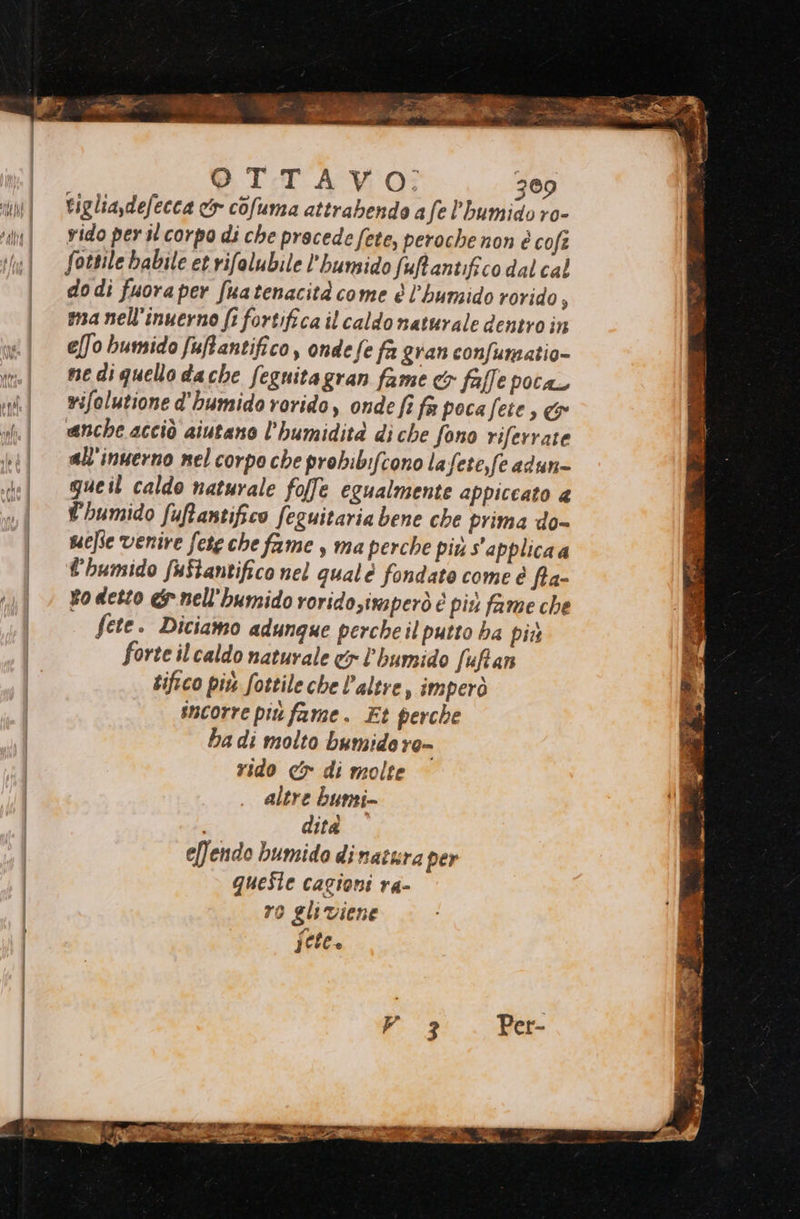 OTTAVO. 369
tiglia,defecca & cõſuma attrahendo a ſe l'humido ro-
rido per il corpo di che procede ſete, peroche non è coſi
ſottile habile et riſolubile l'humido ſuſtantifico dal cal
do di fuora per ſua tenacità come è l'humido rorido,
ma nell'inuerno ſi fortifica il caldo naturale dentro in
eſſo humido ſuſtantifico, onde ſe fa gran conſumatio-
ne di quello da che ſeguita gran fame & faſſe poca
riſolutione d'humido rorido, onde ſi fa poca ſete, &
anche acciò aiutano l'humidità di che ſono riſerrate
all'inuerno nel corpo che prohibiſcono la ſete, ſe adun-
que il caldo naturale foſſe egualmente appiccato a
l'humido ſuſtantifico ſeguitaria bene che prima do-
ueſſe venire ſete che fame, ma perche più s'applica a
l'humido ſuſtantifico nel qual è fondato come è ſta-
to detto & nell'humido rorido, imperò è più fame che
ſete. Diciamo adunque perche il putto ha più
forte il caldo naturale & l'humido ſuſtan
tifico più ſottile che l'altre, imperò
incorre più fame. Et perche
ha di molto humido ro-
rido & di molte
altre humi-
dità
eſſendo humido di natura per
queſte cagioni ra-
ro gli viene
ſete.
F 3 Per-